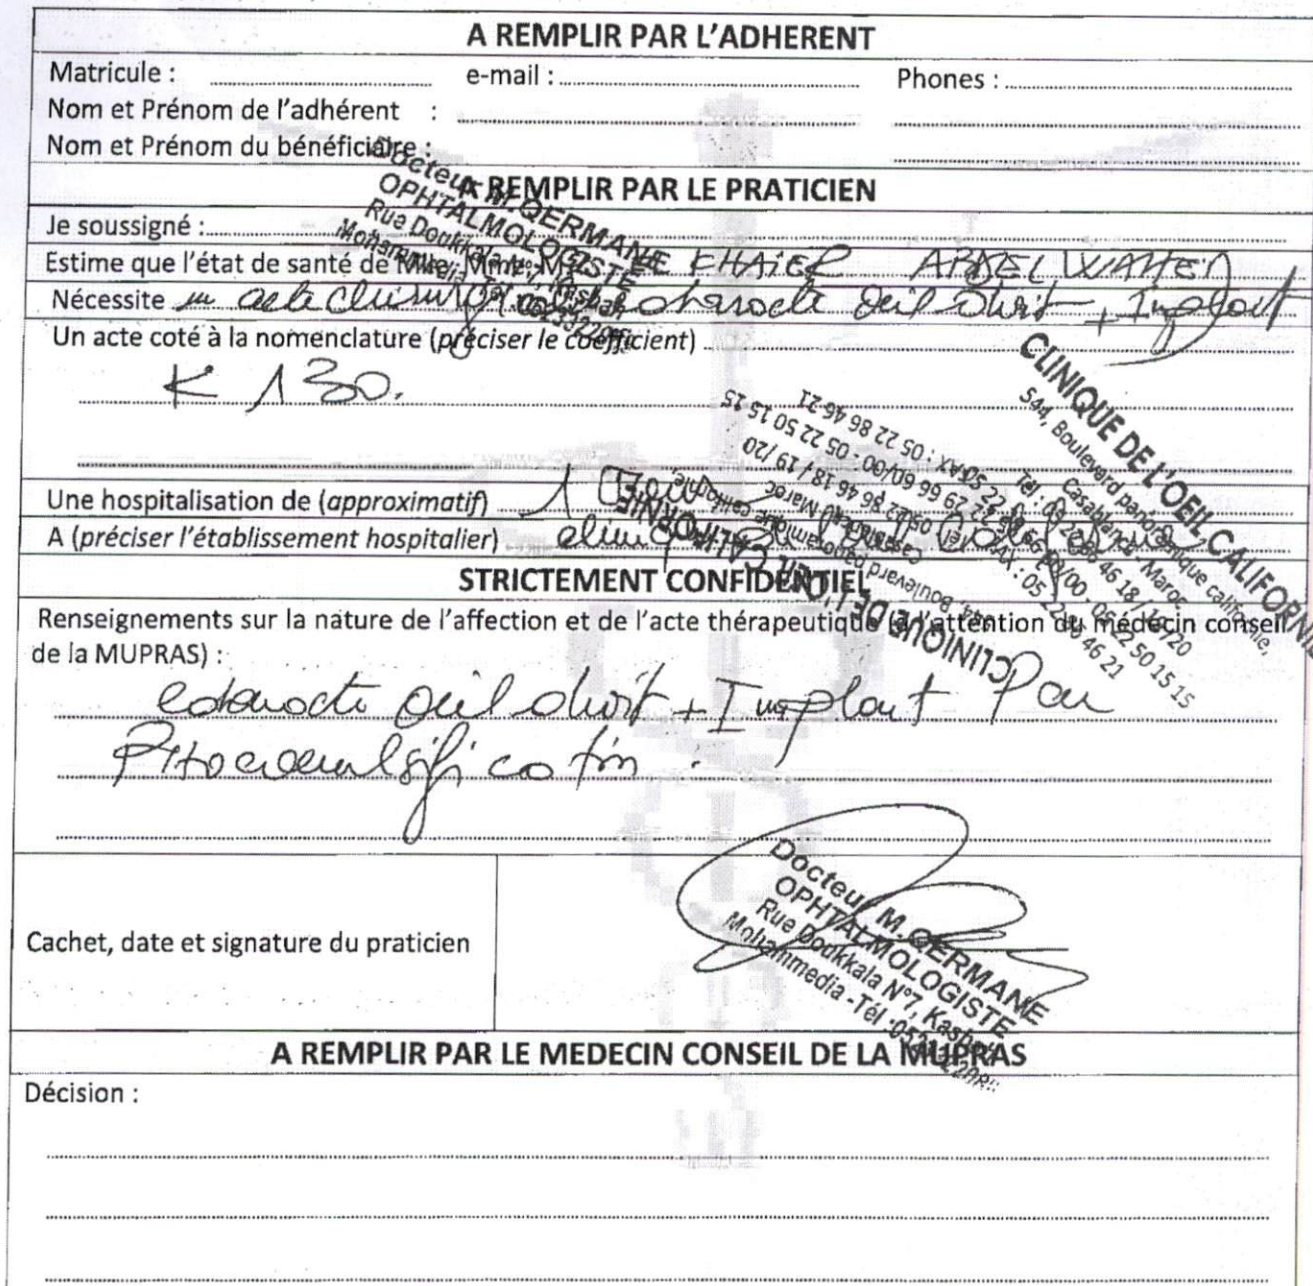 A REMPLIR PAR L'ADHERENT
Matricule : e-mail : Phones :
Nom et Prénom de l'adhérent :
Nom et Prénom du bénéficiaire :
A REMPLIR PAR LE PRATICIEN
Docteur M. QERMANE
OPHTALMOLOGISTE
Rue Doukkala N°7, Kasbah
Mohammedia - Tél
Je soussigné :
Estime que l'état de santé de Mlle, Mme, Mr KHAIER ABDELWAHED
Nécessite un acte chirurgical oeil droit + Implant
Un acte coté à la nomenclature (préciser le coefficient)
K 130.
CLINIQUE DE L'OEIL CALIFORNIE
544, Boulevard panoramique californie,
Casablanca - Maroc
Tél : 05 22 86 46 18 / 19 /20
05 22 50 15 15
FAX : 05 22 86 46 21
Une hospitalisation de (approximatif) 1 Jour
A (préciser l'établissement hospitalier) clinique de l'oeil Californie
CLINIQUE DE L'OEIL CALIFORNIE
Boulevard panoramique californie,
Casablanca - Maroc
Tél : 05 22 86 46 18 / 19 /20
05 22 29 66 60/00 - 05 22 50 15 15
FAX : 05 22 86 46 21
STRICTEMENT CONFIDENTIEL
Renseignements sur la nature de l'affection et de l'acte thérapeutique (à l'attention du médecin conseil
de la MUPRAS) :
cataracte oeil droit + Implant Par
Phacoemulsification .
Cachet, date et signature du praticien
Docteur M. QERMANE
OPHTALMOLOGISTE
Rue Doukkala N°7, Kasbah
Mohammedia - Tél :
A REMPLIR PAR LE MEDECIN CONSEIL DE LA MUPRAS
Décision :